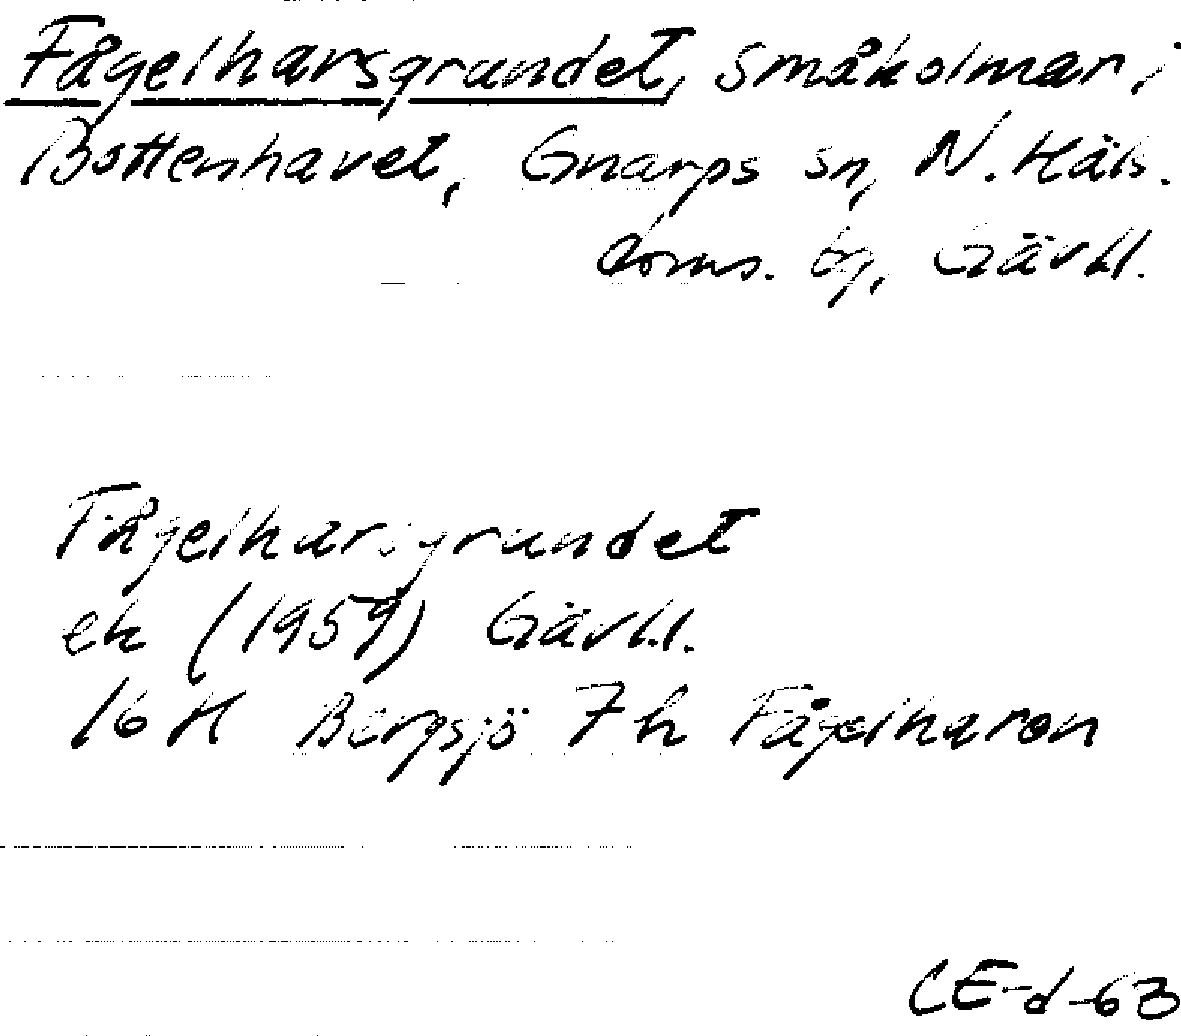 Fågelharsgrundet, småholmar i
Bottenhavet, Gnarps sn, N. Häls.
doms. tg, Gävl.l.
Fågelharsgrundet
ek (1959) Gävl.l.
16 H Bergsjö 7 h Fågelharen
CE-d-63